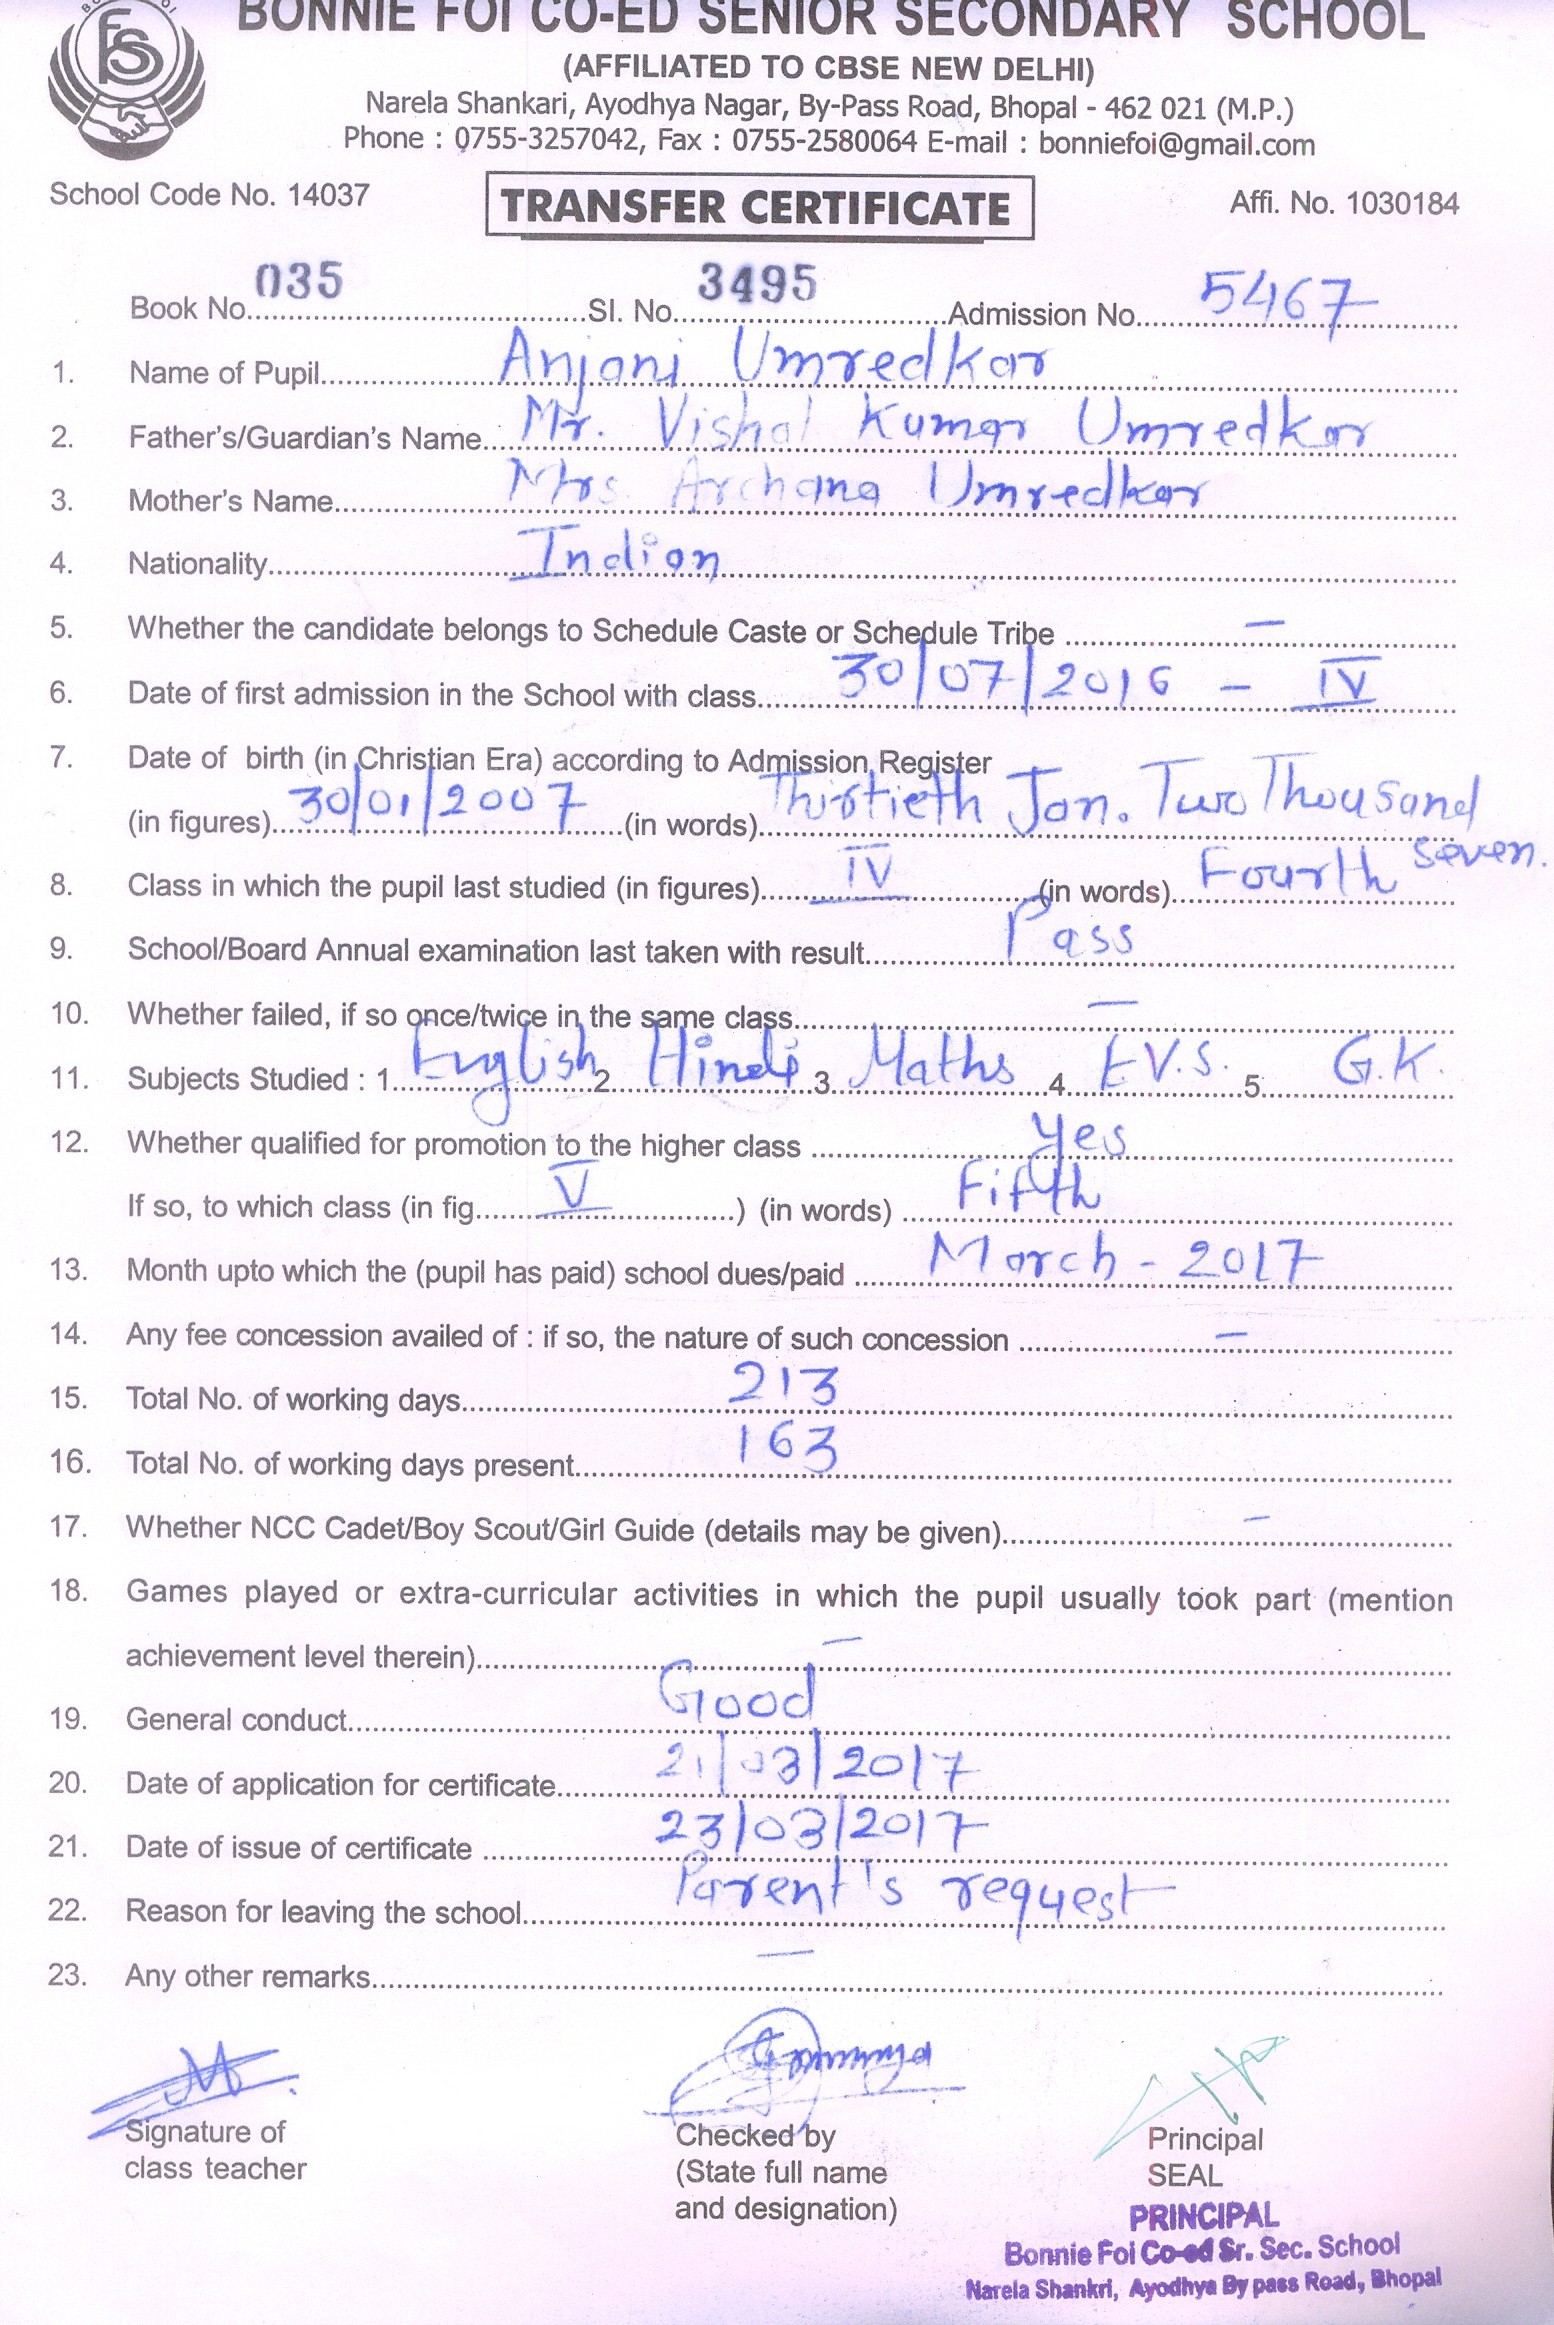 BONNIE FOI CO-ED SENIOR SECONDARY SCHOOL
(AFFILIATED TO CBSE NEW DELHI)
Narela Shankari, Ayodhya Nagar, By-Pass Road, Bhopal - 462 021 (M.P.)
Phone : 0755-3257042, Fax : 0755-2580064 E-mail : bonniefoi@gmail.com
School Code No. 14037 TRANSFER CERTIFICATE Affi. No. 1030184
Book No. 035 Sl. No. 3495 Admission No. 5467
1. Name of Pupil Anjani Umredkar
2. Father's/Guardian's Name Mr. Vishal Kumar Umredkar
3. Mother's Name Mrs. Archana Umredkar
4. Nationality Indian
5. Whether the candidate belongs to Schedule Caste or Schedule Tribe —
6. Date of first admission in the School with class 30/07/2016 - IV
7. Date of birth (in Christian Era) according to Admission Register
(in figures) 30/01/2007 (in words) Thirtieth Jan. Two Thousand
seven.
8. Class in which the pupil last studied (in figures) IV (in words) Fourth
9. School/Board Annual examination last taken with result Pass
10. Whether failed, if so once/twice in the same class —
11. Subjects Studied : 1 English 2 Hindi 3 Maths 4 E.V.S. 5 G.K.
12. Whether qualified for promotion to the higher class Yes
If so, to which class (in fig. V ) (in words) Fifth
13. Month upto which the (pupil has paid) school dues/paid March - 2017
14. Any fee concession availed of : if so, the nature of such concession —
15. Total No. of working days 213
16. Total No. of working days present 163
17. Whether NCC Cadet/Boy Scout/Girl Guide (details may be given) —
18. Games played or extra-curricular activities in which the pupil usually took part (mention
achievement level therein) —
19. General conduct Good
20. Date of application for certificate 21/03/2017
21. Date of issue of certificate 23/03/2017
22. Reason for leaving the school Parent's request
23. Any other remarks —
Signature of
class teacher
Checked by
(State full name
and designation)
Principal
SEAL
PRINCIPAL
Bonnie Foi Co-ed Sr. Sec. School
Narela Shankri, Ayodhya By pass Road, Bhopal